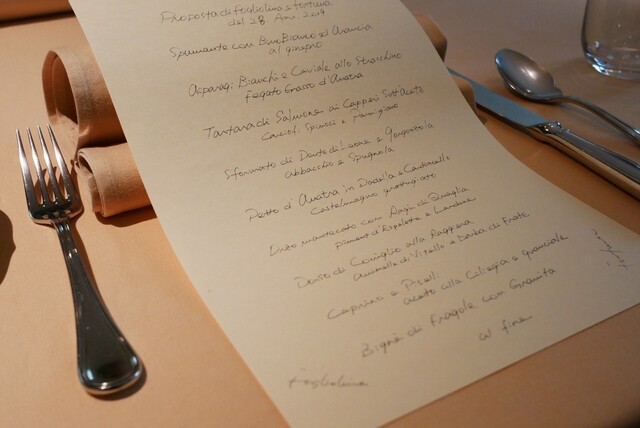 Proposta di Fogliolina e fortuna
del 28. Apr. 2019
Spumante con Burro Bianco ed Arancia
al ginepro
Asparagi Bianchi e Caviale allo Stracchino
Fegato Grasso d'Anatra
Tartara di Salmone ai Capperi Sott'Aceto
Carciofi Spinosi e Parmigiano
Sformato di Dente di Leone e Gorgonzola
abbacchio e Spugnola
Petto d'Anatra in
Castelmagno grattugiato
mantecato con Ragù di Quaglia
piment d'Espelette e
Dorso di Coniglio alla
animelle di Vitello e Barba di Frate
Caprino e Piselli
aceto alla Ciliegia e guanciale
Bignè di Fragole con Granita
al fine
Fogliolina